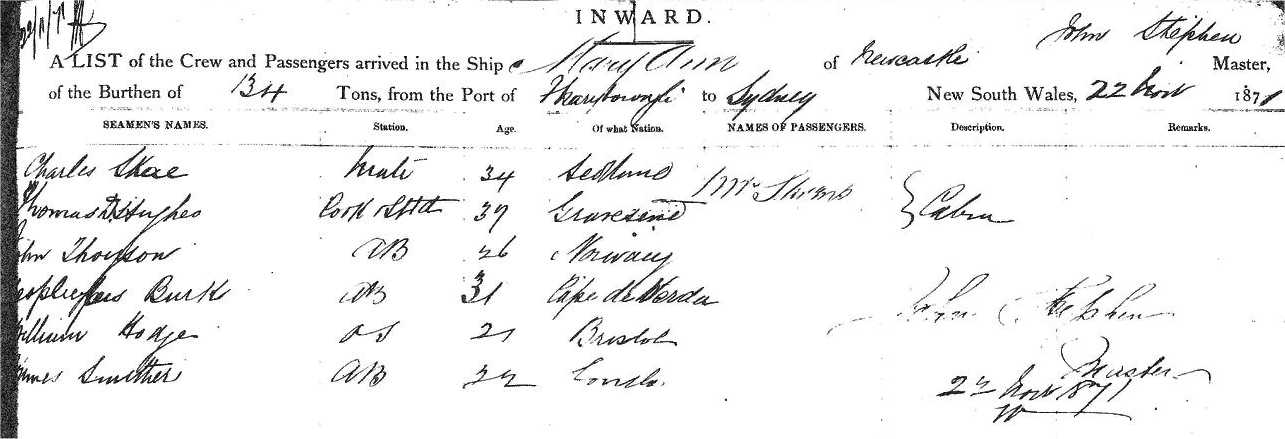 INWARD.
John Stephen
A LIST of the Crew and Passengers arrived in the Ship Mary Ann of Newcastle Master,
of the Burthen of 134 Tons, from the Port of to Sydney New South Wales, 22 Nov 1871
SEAMEN'S NAMES. Station. Age. Of what Nation. NAMES OF PASSENGERS. Description. Remarks.
Charles Skae Mate 34 Scotland Mrs
Thomas Hughes Cook & Stwd 37 Gravesend Cabin
John AB 26 Norway
Burk AB 31 Cape de Verde John Stephen
William Hodge OS 21 Bristol
James Smither AB 22 London Master
22 Nov 1871